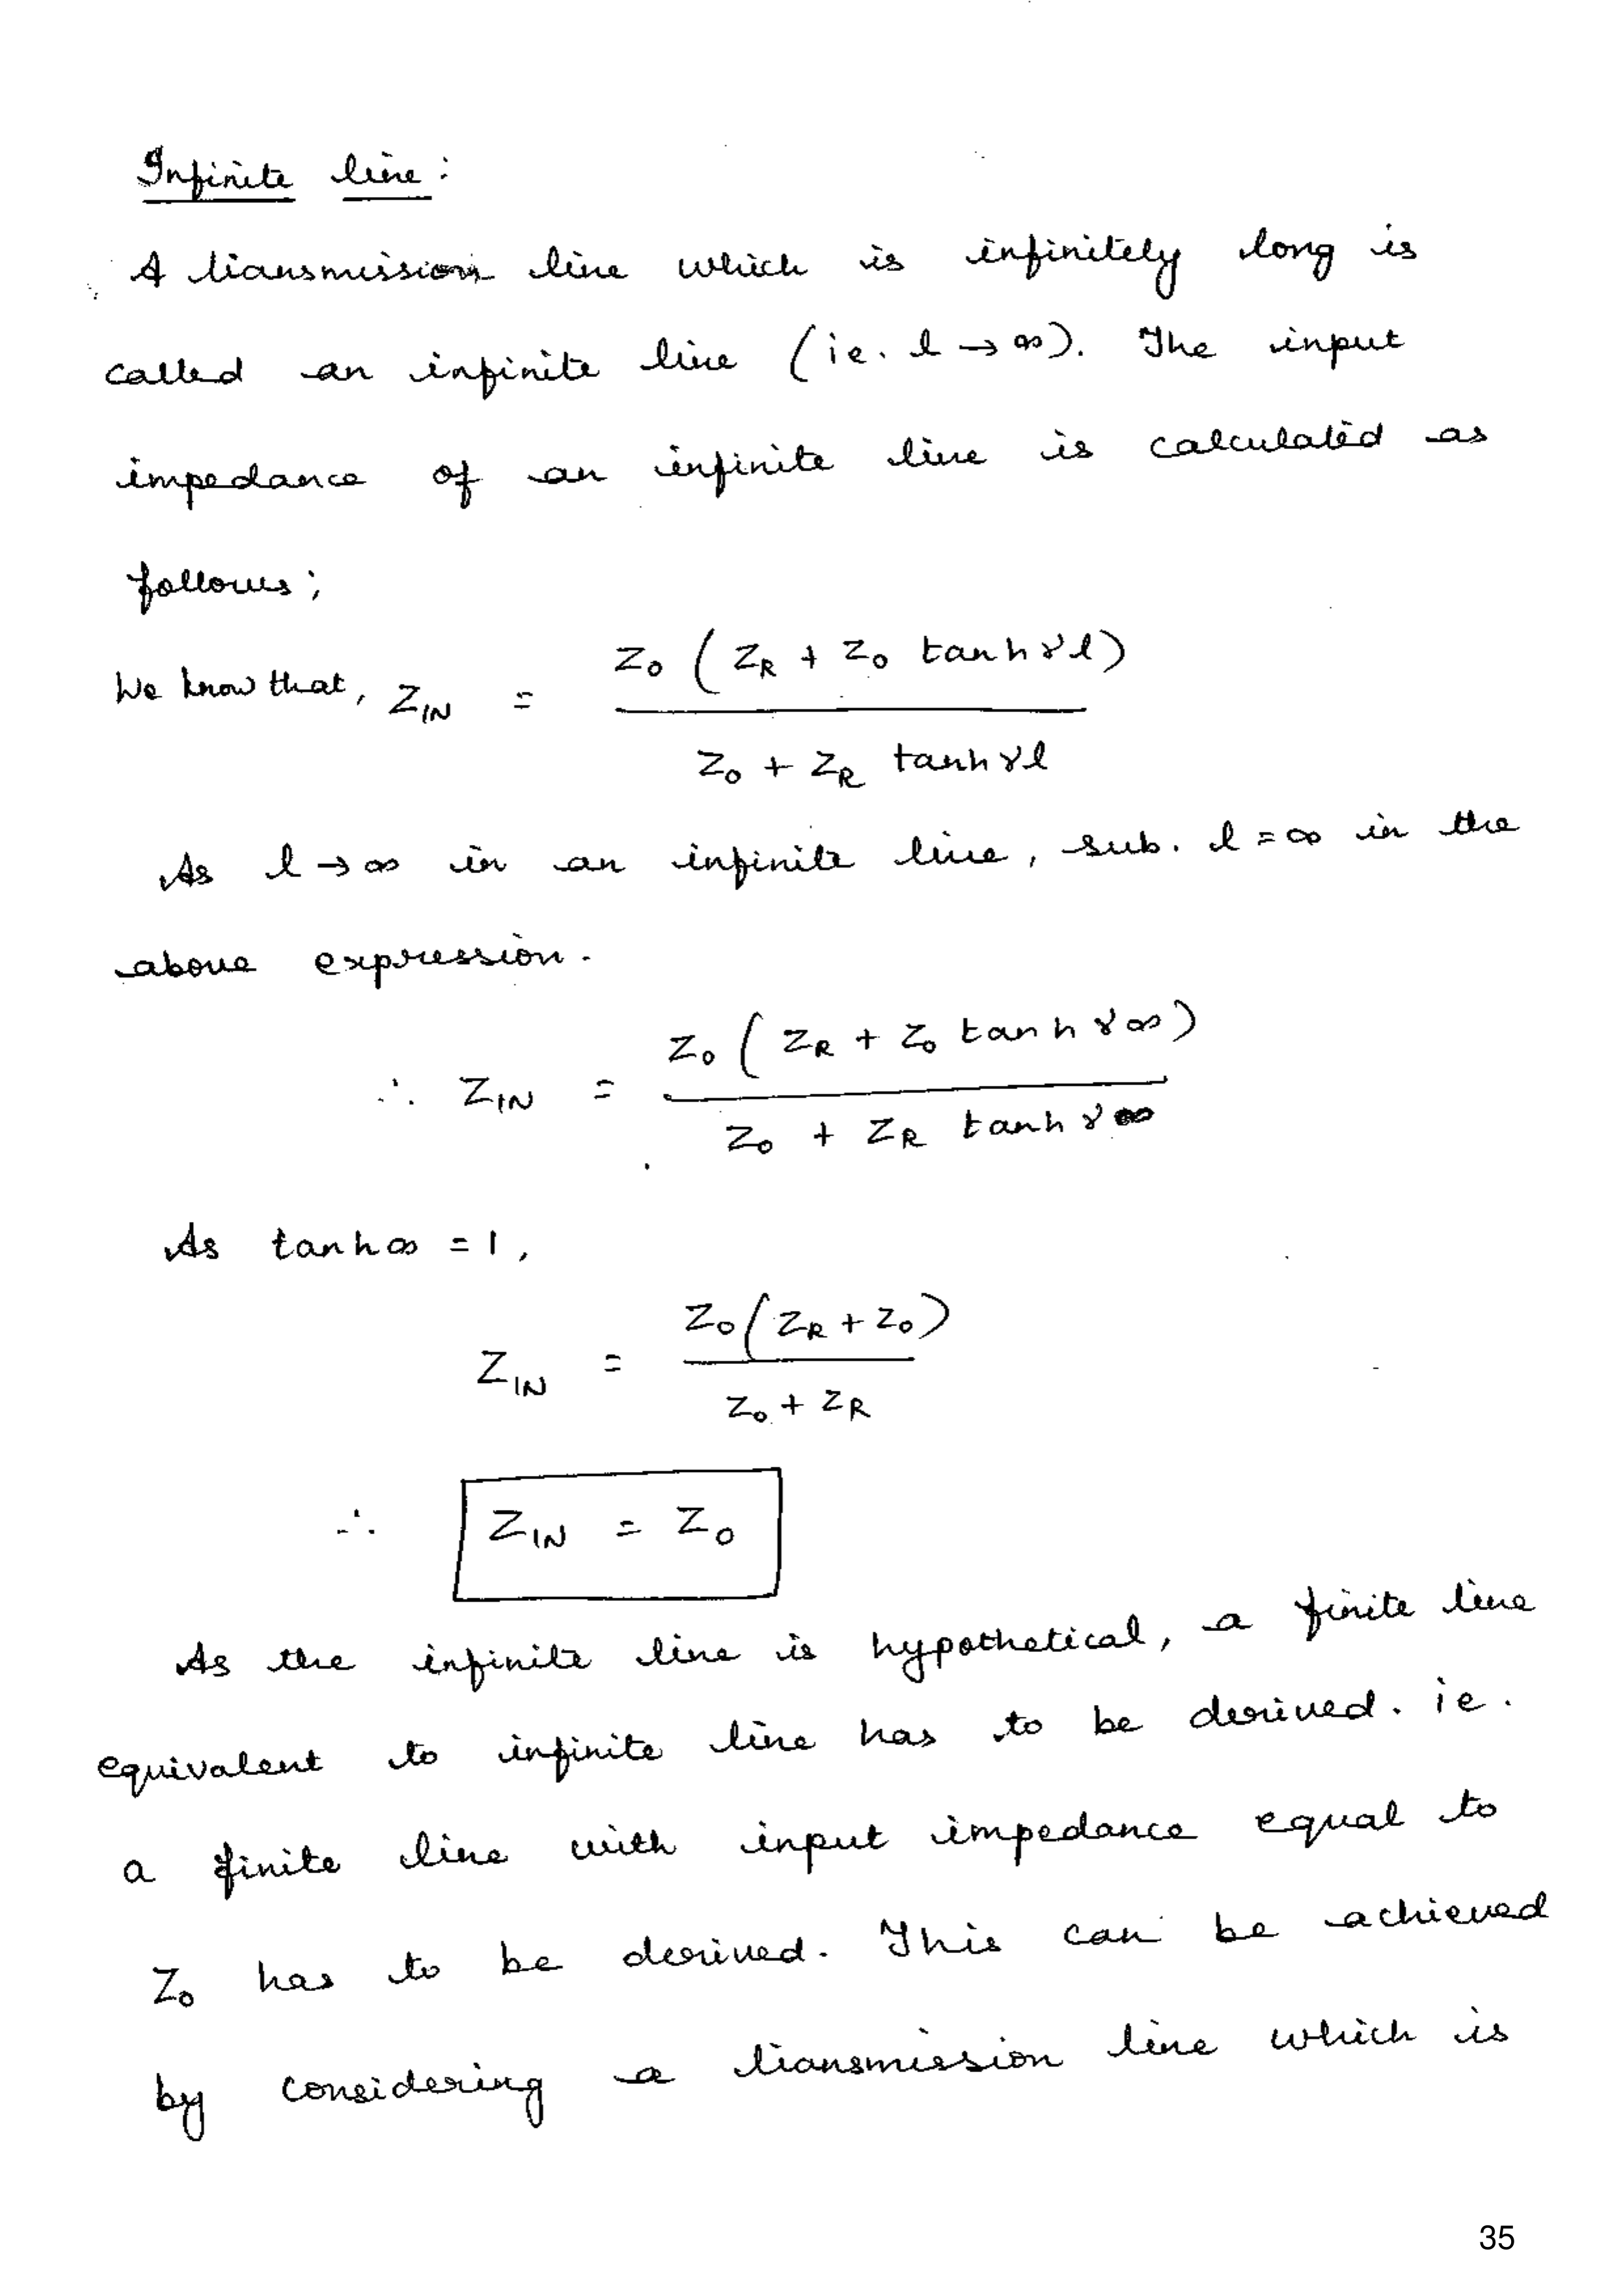 Infinite line:
A transmission line which is infinitely long is
called an infinite line (ie. l → ∞). The input
impedance of an infinite line is calculated as
follows;
We know that, Z_IN = Z₀ ( Z_R + Z₀ tanh γl ) / Z₀ + Z_R tanh γl
As l → ∞ in an infinite line, sub. l = ∞ in the
above expression.
∴ Z_IN = Z₀ ( Z_R + Z₀ tanh γ∞ ) / Z₀ + Z_R tanh γ∞
As tanh ∞ = 1,
Z_IN = Z₀ ( Z_R + Z₀ ) / Z₀ + Z_R
∴ Z_IN = Z₀
As the infinite line is hypothetical, a finite line
equivalent to infinite line has to be derived. ie.
a finite line with input impedance equal to
Z₀ has to be derived. This can be achieved
by considering a transmission line which is
35